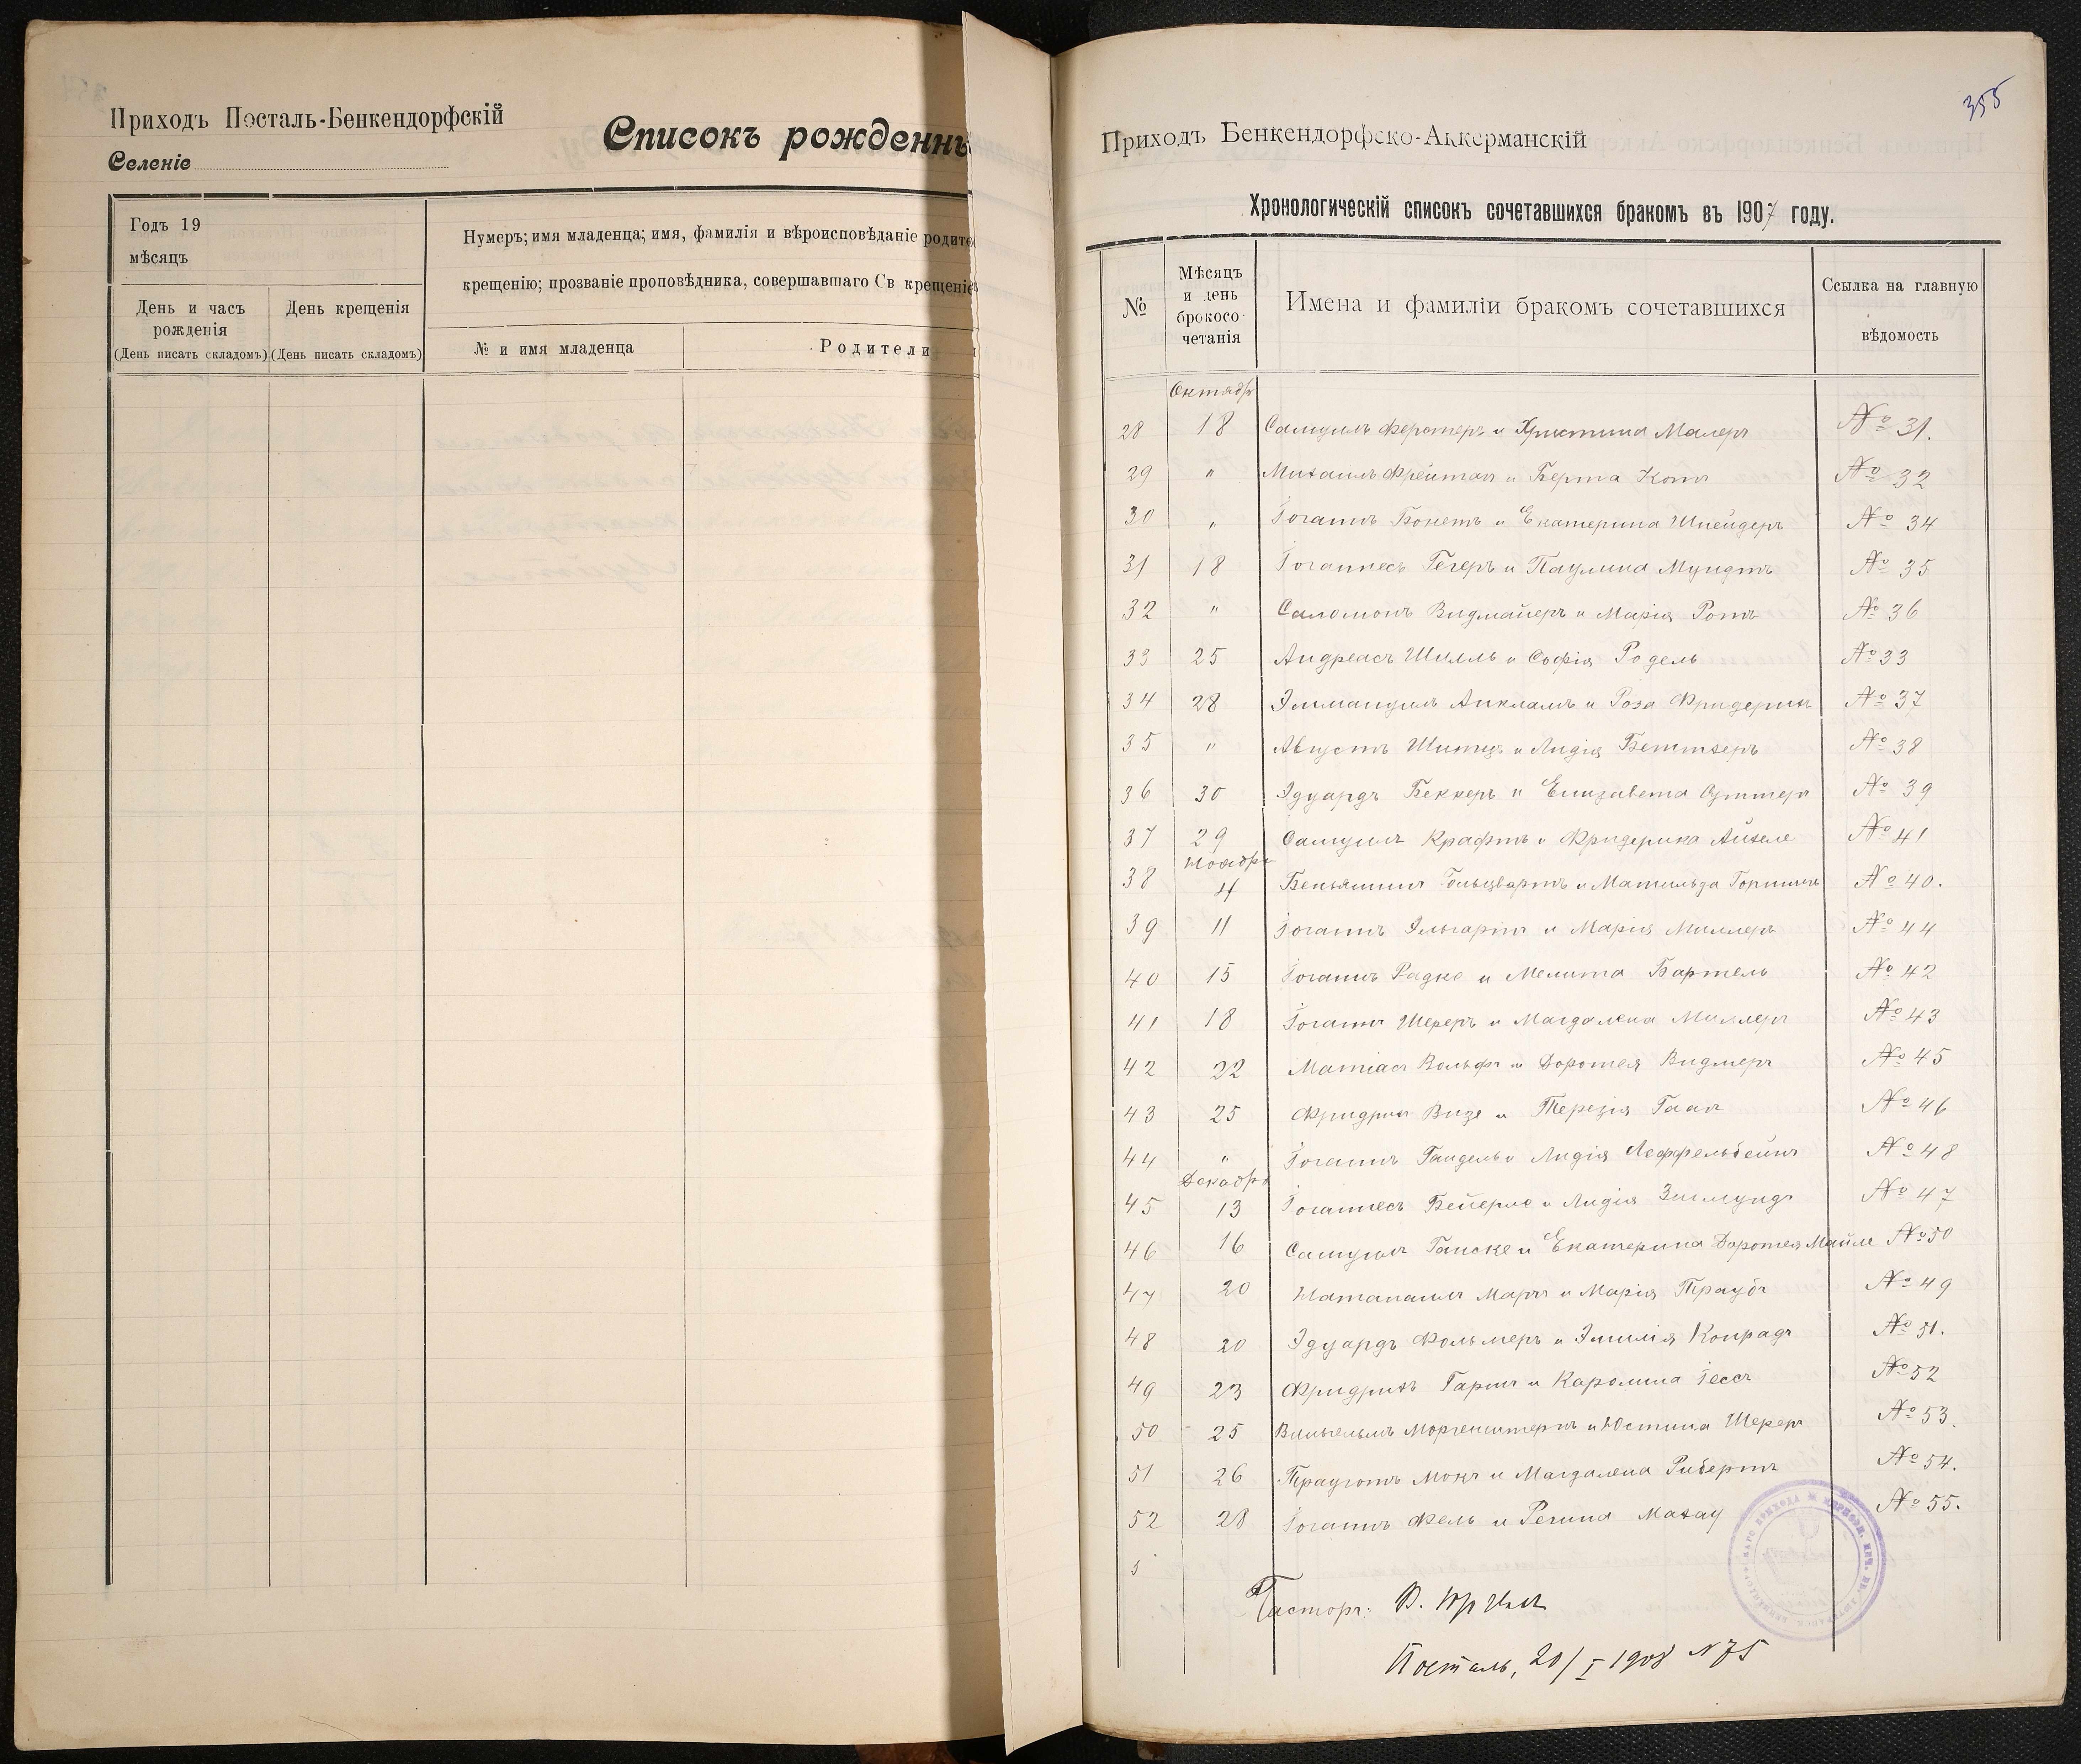 Приходъ Посталь-Бенкендорфскій
Селеніе
Списокъ рожденны
Годъ 19
мѣсяцъ
Нумеръ; имя младенца; имя, фамилія и вѣроисповѣданіе родите
крещенію; прозваніе проповѣдника, совершавшаго Св крещеніе
День и часъ
рожденія
(День писать складомъ)
День крещенія
(День писать складомъ)
№ и имя младенца
Родители
355
Приходъ Бенкендорфско-Аккерманскій
Хронологическій списокъ сочетавшихся бракомъ въ 1907 году.
№
Мѣсяцъ
и день
брокосо-
четанія
Имена и фамиліи бракомъ сочетавшихся
Ссылка на главную
вѣдомость
Октябрь
28 18 Самуилъ Ферстеръ и Христина Малеръ № 31.
29 " Михаилъ Фрейтагъ и Берта Котъ № 32
30 " Іоганнъ Бонетъ и Екатерина Шнейдеръ № 34
31 18 Іоганнесъ Гегеръ и Паулина Мундтъ № 35
32 " Саломонъ Видмайеръ и Марія Ротъ № 36
33 25 Андреасъ Шилль и Софія Родель № 33
34 28 Эммануилъ Анкламъ и Роза Фридерихъ № 37
35 " Августъ Шитцъ и Лидія Беттхеръ № 38
36 30 Эдуардъ Беккеръ и Елизавета № 39
37 29 Самуилъ Крафтъ и Фридерика Айхеле № 41
Ноябрь
38 4 Беньяминъ Гольцвартъ и Матильда № 40.
39 11 Іоганнъ и Марія Миллеръ № 44
40 15 Іоганнъ Радке и Мелита Бартель № 42
41 18 Іоганнъ Шереръ и Магдалена Миллеръ № 43
42 22 Матіасъ Вольфъ и Доротея Видмеръ № 45
43 25 Фридрихъ Визе и Терезія Гаагъ № 46
44 " Іоганнъ Гандель и Лидія Леффельбейнъ № 48
Декабрь
45 13 Іоганнесъ Бейерле и Лидія Зигмундъ № 47
46 16 Самуилъ Ганске и Екатерина Доротея Майле № 50
47 20 Натанаилъ Маръ и Марія Траубъ № 49
48 20 Эдуардъ Фольмеръ и Эмилія Конрадъ № 51.
49 23 Фридрихъ Гаринъ и Каролина Гессъ № 52
50 25 Вильгельмъ Моргенштернъ и Юстина Шереръ № 53.
51 26 Трауготъ Мокъ и Магдалена Рибертъ № 54.
52 28 Іоганнъ Фель и Регина Махау № 55.
5
Пасторъ: Ф.
Посталь, 20/I 1908 N 75